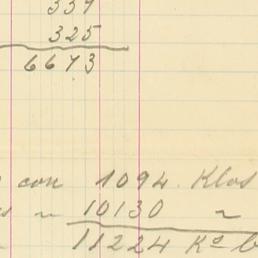 337
325
6673
con 1094. Klos
~ 10130 ~
11224 Ko b